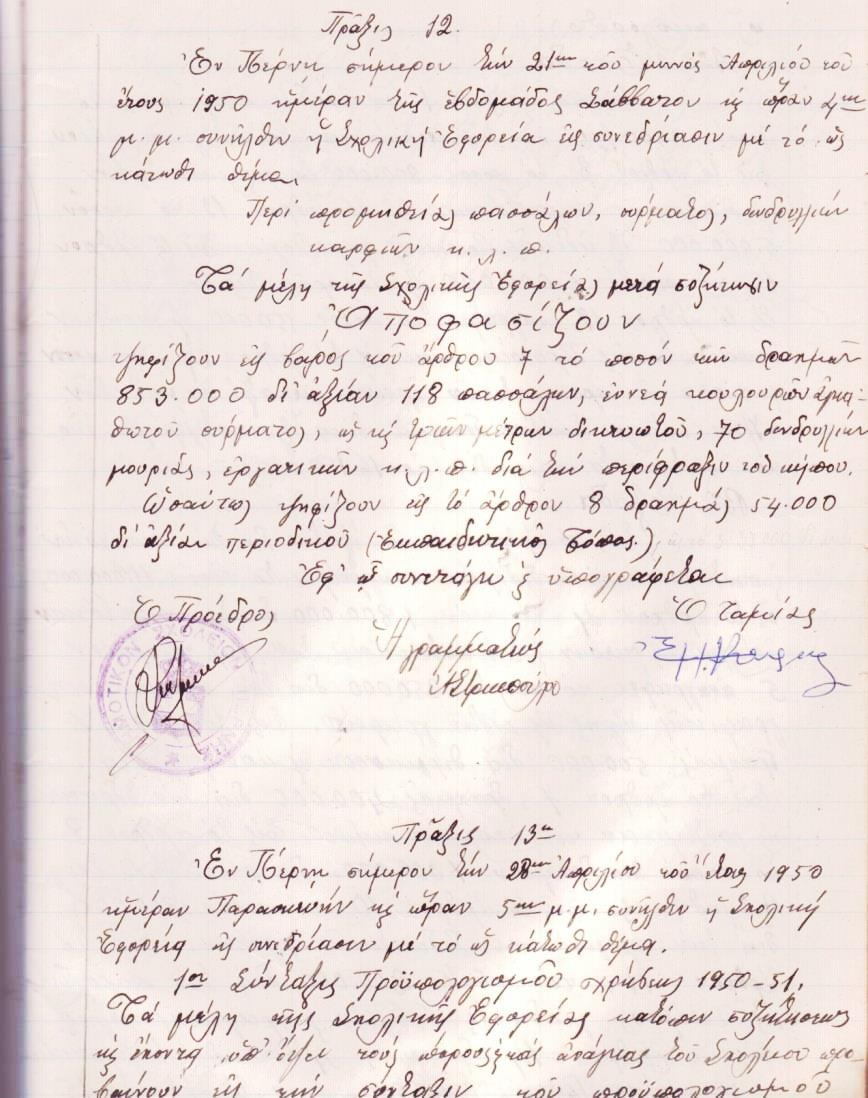 Πρᾶξις 12.
Ἐν Πέρνῃ σήμερον τήν 21ην τοῦ μηνός Ἀπριλίου τοῦ
ἔτους 1950 ἡμέραν τῆς ἑβδομάδος Σάββατον κ ὥραν 4ην
μ.μ. συνῆλθεν ἡ Σχολική Ἐφορεία εἰς συνεδρίασιν μέ τό ὡς
κάτωθι θέμα.
Περί προμηθείας πασσάλων, σύρματος, δενδρυλλίων
καρφιῶν κ.λ.π.
Τά μέλη τῆς Σχολικῆς Ἐφορείας μετά συζήτησιν
Ἀποφασίζουν
ψηφίζουν εἰς βάρος τοῦ ἄρθρου 7 τό ποσόν τῶν δραχμῶν
853.000 δι' ἀξίαν 118 πασσάλων, ἐννεά κουλουρῶν ἀγκα-
θωτοῦ σύρματος, ὡς κ τριῶν μέτρων δικτυωτοῦ, 70 δενδρυλλίων
μουριᾶς, ἐργατικῶν κ.λ.π. διά τήν περίφραξιν τοῦ κήπου.
Ὡσαύτως ψηφίζουν εἰς τό ἄρθρον 8 δραχμάς 54.000
δι' ἀξίαν περιοδικοῦ (Ἐκπαιδευτικός Τύπος.)
Ἐφ' ᾧ συνετάγη κ ὑπογράφεται
Ὁ Πρόεδρος Ὁ Ταμίας
Ἡ γραμματεύς
Πρᾶξις 13η
Ἐν Πέρνῃ σήμερον τήν 28ην Ἀπριλίου τοῦ ἔτους 1950
ἡμέραν Παρασκευήν κ ὥραν 5ην μ.μ. συνῆλθεν ἡ Σχολική
Ἐφορεία εἰς συνεδρίασιν μέ τό ὡς κάτωθι θέμα.
1ον Σύνταξις Προϋπολογισμοῦ χρήσεως 1950-51.
Τά μέλη τῆς Σχολικῆς Ἐφορείας κατόπιν συζητήσεως
κ ἔχοντα ὑπ' ὄψει τούς ἀνάγκας τοῦ Σχολείου προ-
βαίνουν εἰς τήν σύνταξιν τοῦ προϋπολογισμοῦ